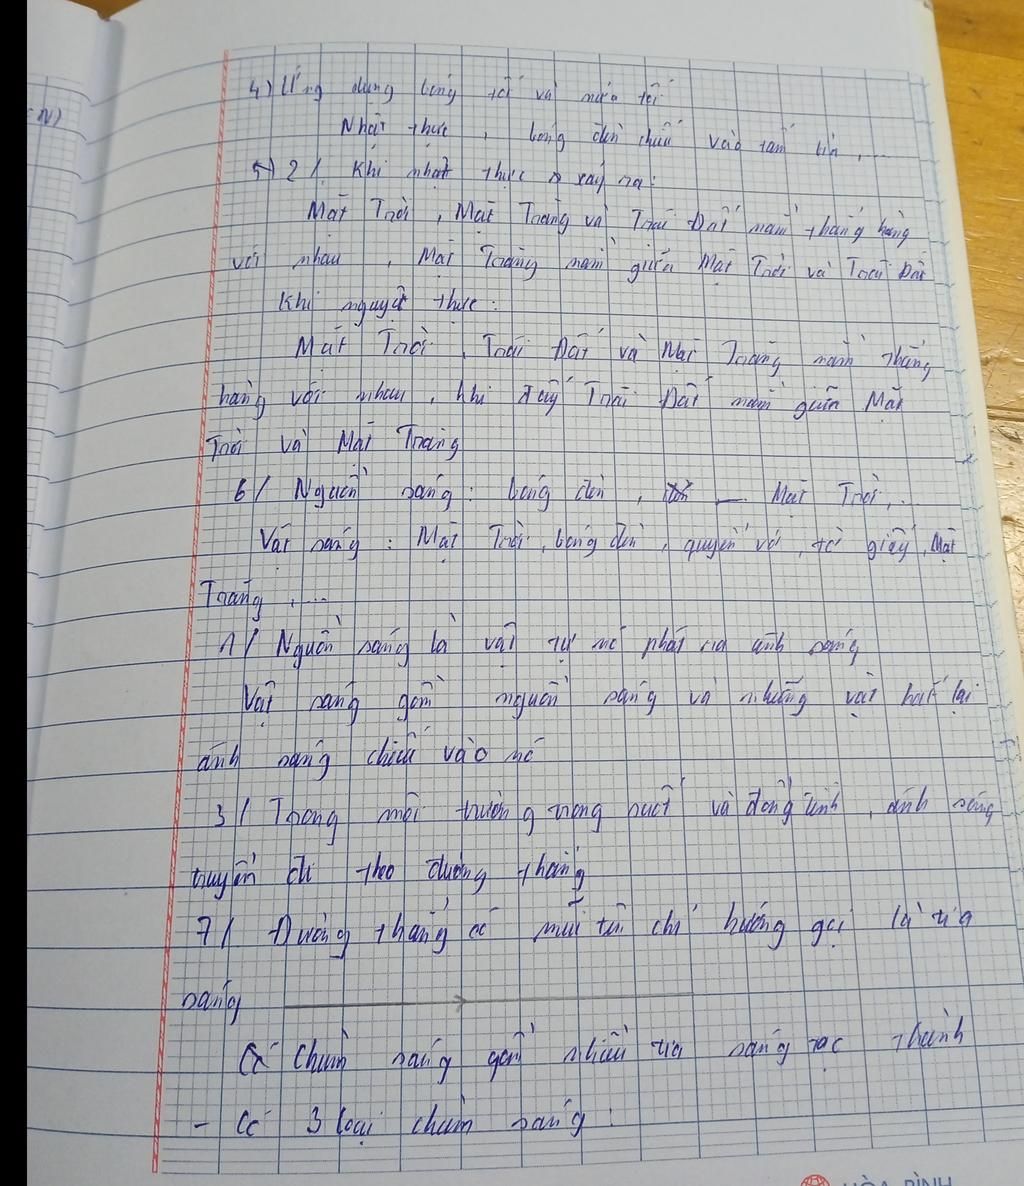 N)
4) Ứng dụng bóng tối và nửa tối
Nhật thực, bóng đèn chiếu vào tấm bìa,...
5) 2/. Khi nhật thực xảy ra:
Mặt Trời, Mặt Trăng và Trái Đất nằm thẳng hàng
với nhau, Mặt Trăng nằm giữa Mặt Trời và Trái Đất
Khi nguyệt thực:
Mặt Trời, Trái Đất và Mặt Trăng nằm thẳng
hàng với nhau, khi đấy Trái Đất nằm giữa Mặt
Trời và Mặt Trăng
6/ Nguồn sáng: bóng đèn, ... Mặt Trời,..
Vật sáng: Mặt Trời, bóng đèn, quyển vở, tờ giấy, Mặt
Trăng,....
1/ Nguồn sáng là vật tự nó phát ra ánh sáng
Vật sáng gồm nguồn sáng và những vật hắt lại
ánh sáng chiếu vào nó
3/ Trong môi trường trong suốt và đồng tính, ánh sáng
truyền đi theo đường thẳng
7/ Đường thẳng có mũi tên chỉ hướng gọi là tia
sáng
Chùm sáng gồm nhiều tia sáng hợp thành
- Có 3 loại chùm sáng:
HÒA BÌNH